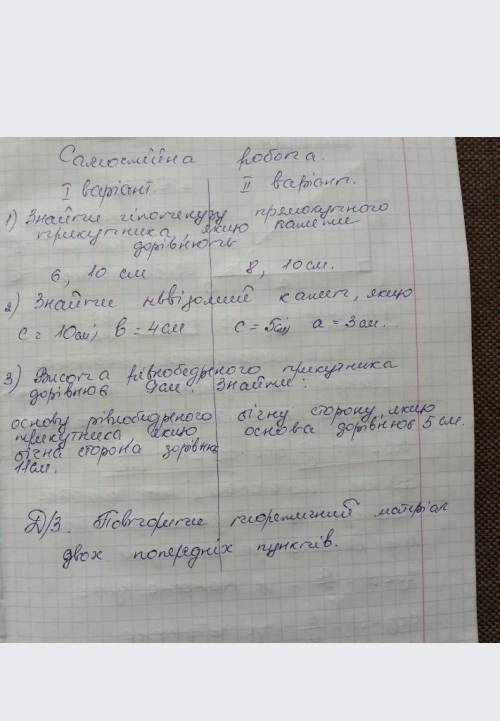 Самостійна робота.
I варіант. II варіант.
1) Знайти гіпотенузу прямокутного
трикутника, якщо катети
дорівнюють
6, 10 см 8, 10 см.
2) Знайти невідомий катет, якщо
c = 10 см; b = 4 см c = 5 см a = 3 см.
3) Висота рівнобедреного трикутника
дорівнює 9 см. Знайти:
основу рівнобедреного бічну сторону, якщо
трикутника якщо основа дорівнює 5 см.
бічна сторона дорівнює
11 см.
Д/З. Повторити теоретичний матеріал
двох попередніх пунктів.